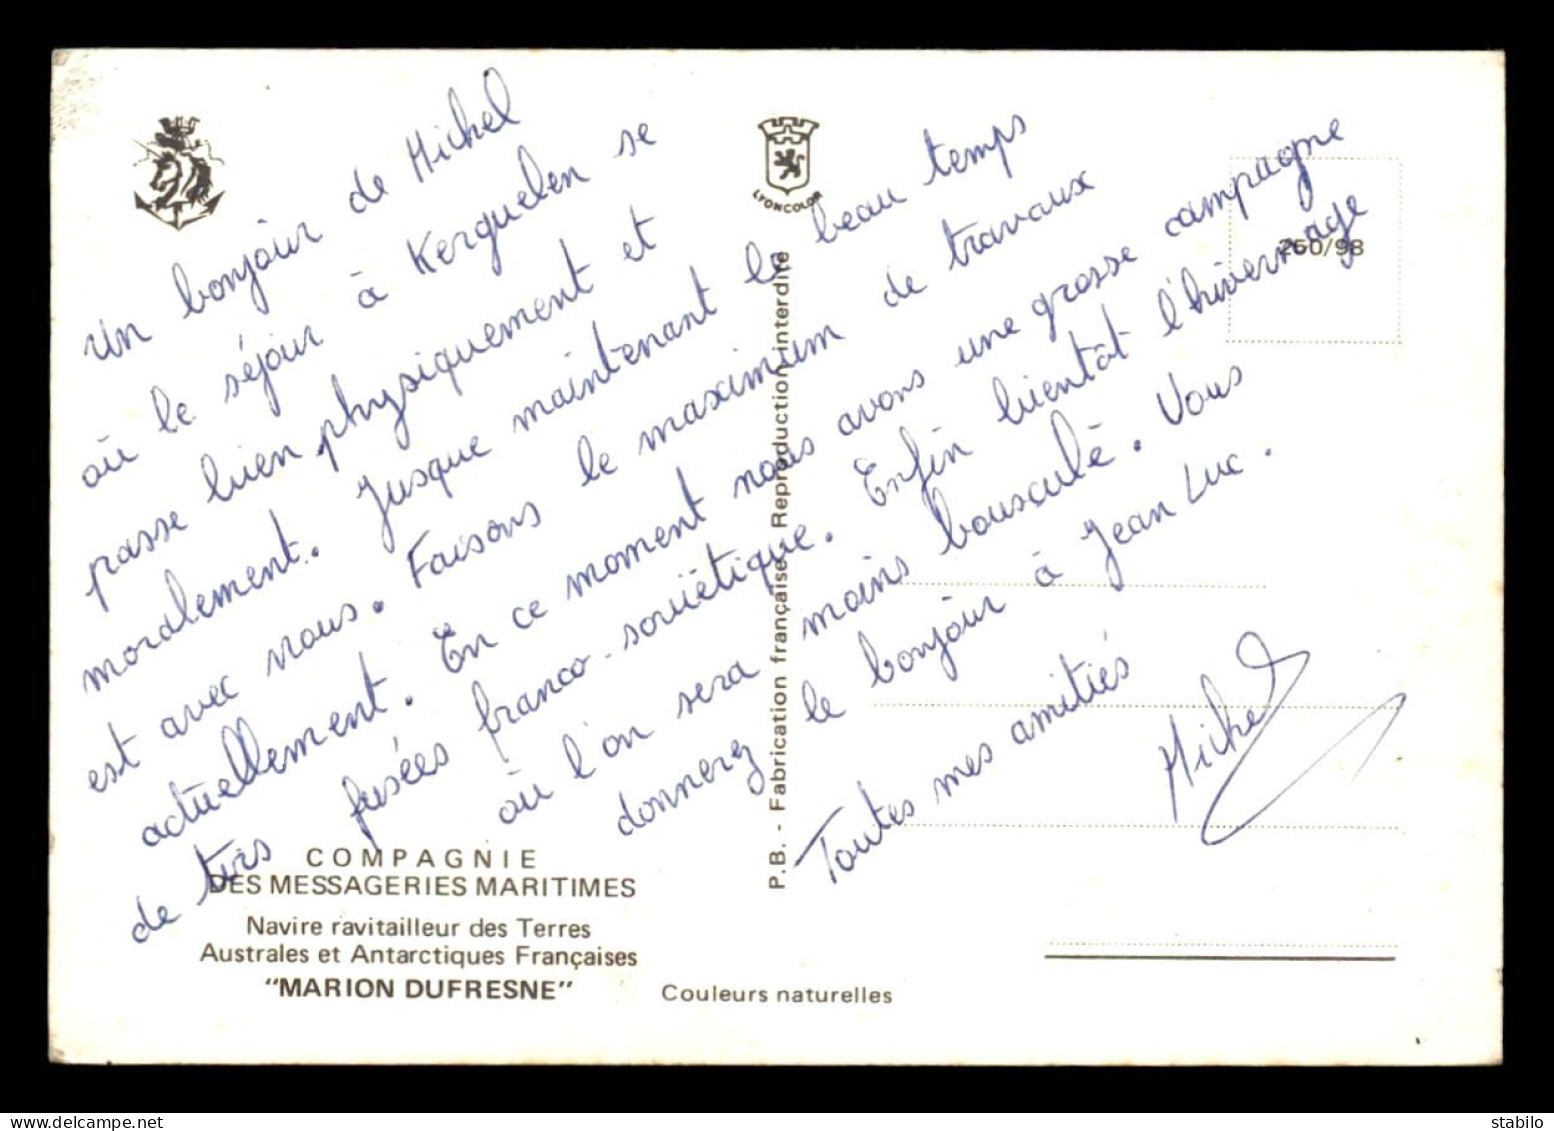 Un bonjour de Michel
où le séjour à Kerguelen se
passe bien physiquement et
moralement. Jusque maintenant le beau temps
est avec nous. Faisons le maximum de travaux
actuellement. En ce moment nous avons une grosse campagne
de tirs fusées franco-soviétique. Enfin bientôt l'hivernage
où l'on sera moins bousculé. Vous
donnerez le bonjour à Jean Luc.
Toutes mes amitiés
Michel
LYONCOLOR
260/98
P.B. - Fabrication française Reproduction interdite
COMPAGNIE
DES MESSAGERIES MARITIMES
Navire ravitailleur des Terres
Australes et Antarctiques Françaises
"MARION DUFRESNE"
Couleurs naturelles
www.delcampe.net
stabilo